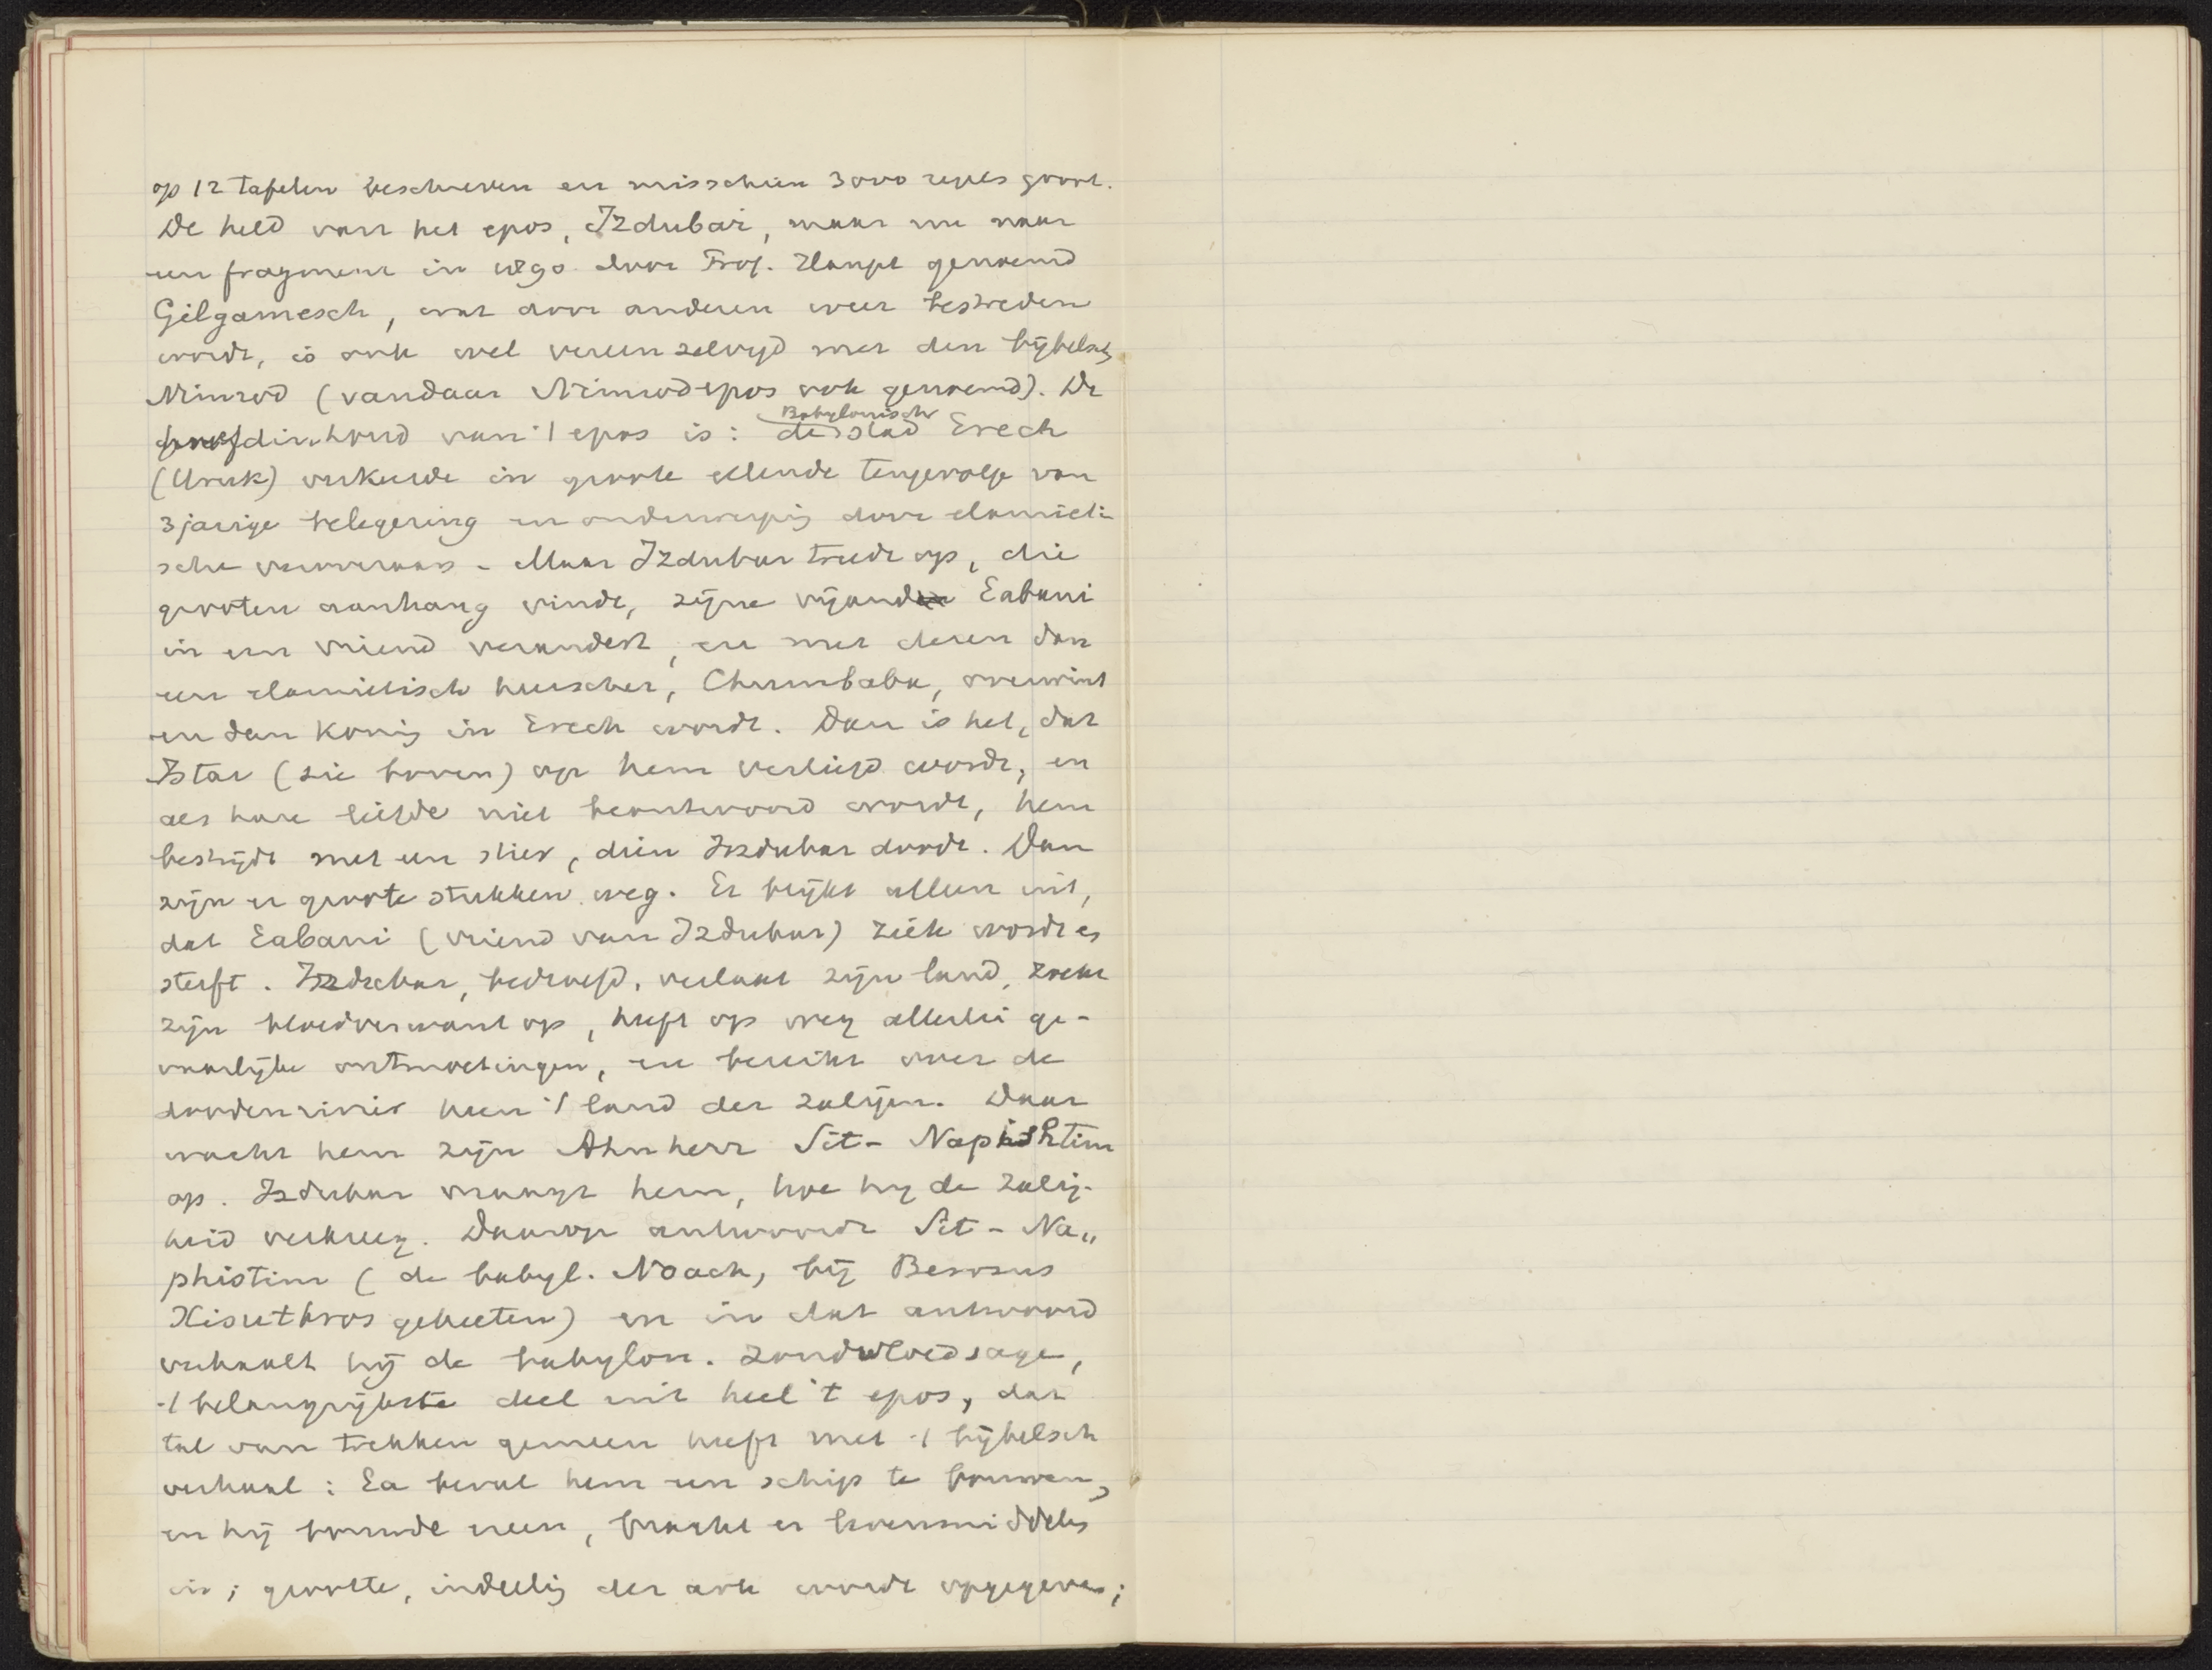 op 12 tafelen beschreven en misschien 3000 regels groot.
De held van het epos, Izdubar, maar nu naar
een fragment in 1890 door Prof. Haupt genoemd
Gilgamesch, wat door anderen weer bestreden
wordt, is ook wel vereenzelvigd met den bijbelsch
Nimrod (vandaar Nimrodepos ook genoemd). De
hoofdinhoud van 't epos is: de Babylonisch stad Erech
(Uruk) verkeerde in groote ellende tengevolge van
3jarige belegering en onderwerping door elamiti-
sche veroveraars - Maar Izdubar treedt op, die
grooten aanhang vindt, zijne vijand Eabani
in een vriend verandert, en met dezen dan
een elamitisch heerscher, Chumbaba, overwint
en dan koning in Erech wordt. Dan is het, dat
Istar (zie boven) op hem verliefd wordt, en
als hare liefde niet beantwoord wordt, hem
bestrijdt met een stier, dien Izdubar doodt. Dan
zijn er groote stukken weg. Er blijkt alleen uit,
dat Eabani (vriend van Izdubar) ziek wordt en
sterft. Izdubar, bedroefd, verlaat zijn land, zoekt
zijn bloedverwant op, heeft op weg allerlei ge-
vaarlijke ontmoetingen, en bereikt over de
doodenrivier heen 't land der zaligen. Daar
wacht hem zijn Ahnherr Sit-Napishtim
op. Izdubar vraagt hem, hoe hij de zalig-
heid verkreeg. Daarop antwoordt Sit-Na„
phistim (de babyl. Noach, bij Berosus
Xisuthros geheeten) en in dat antwoord
verhaalt hij de babylon. zondvloedsage,
't belangrijkste deel uit heel 't epos, dat
tal van trekken gemeen heeft met 't bijbelsch
verhaal: Ea beval hem een schip te bouwen,
en hij bouwde een, bracht er levensmiddelen
in; grootte, indeeling der ark wordt opgegeven;